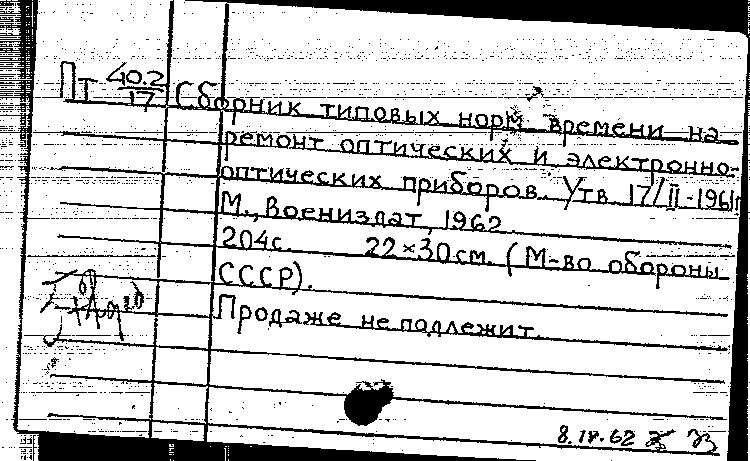 Пт 40.2/17 Сборник типовых норм времени на
ремонт оптических и электронно-
оптических приборов. Утв. 17/II-1961г
М., Воениздат, 1962.
204с. 22×30см. (М-во обороны
СССР).
Продаже не подлежит.
8.IV.62